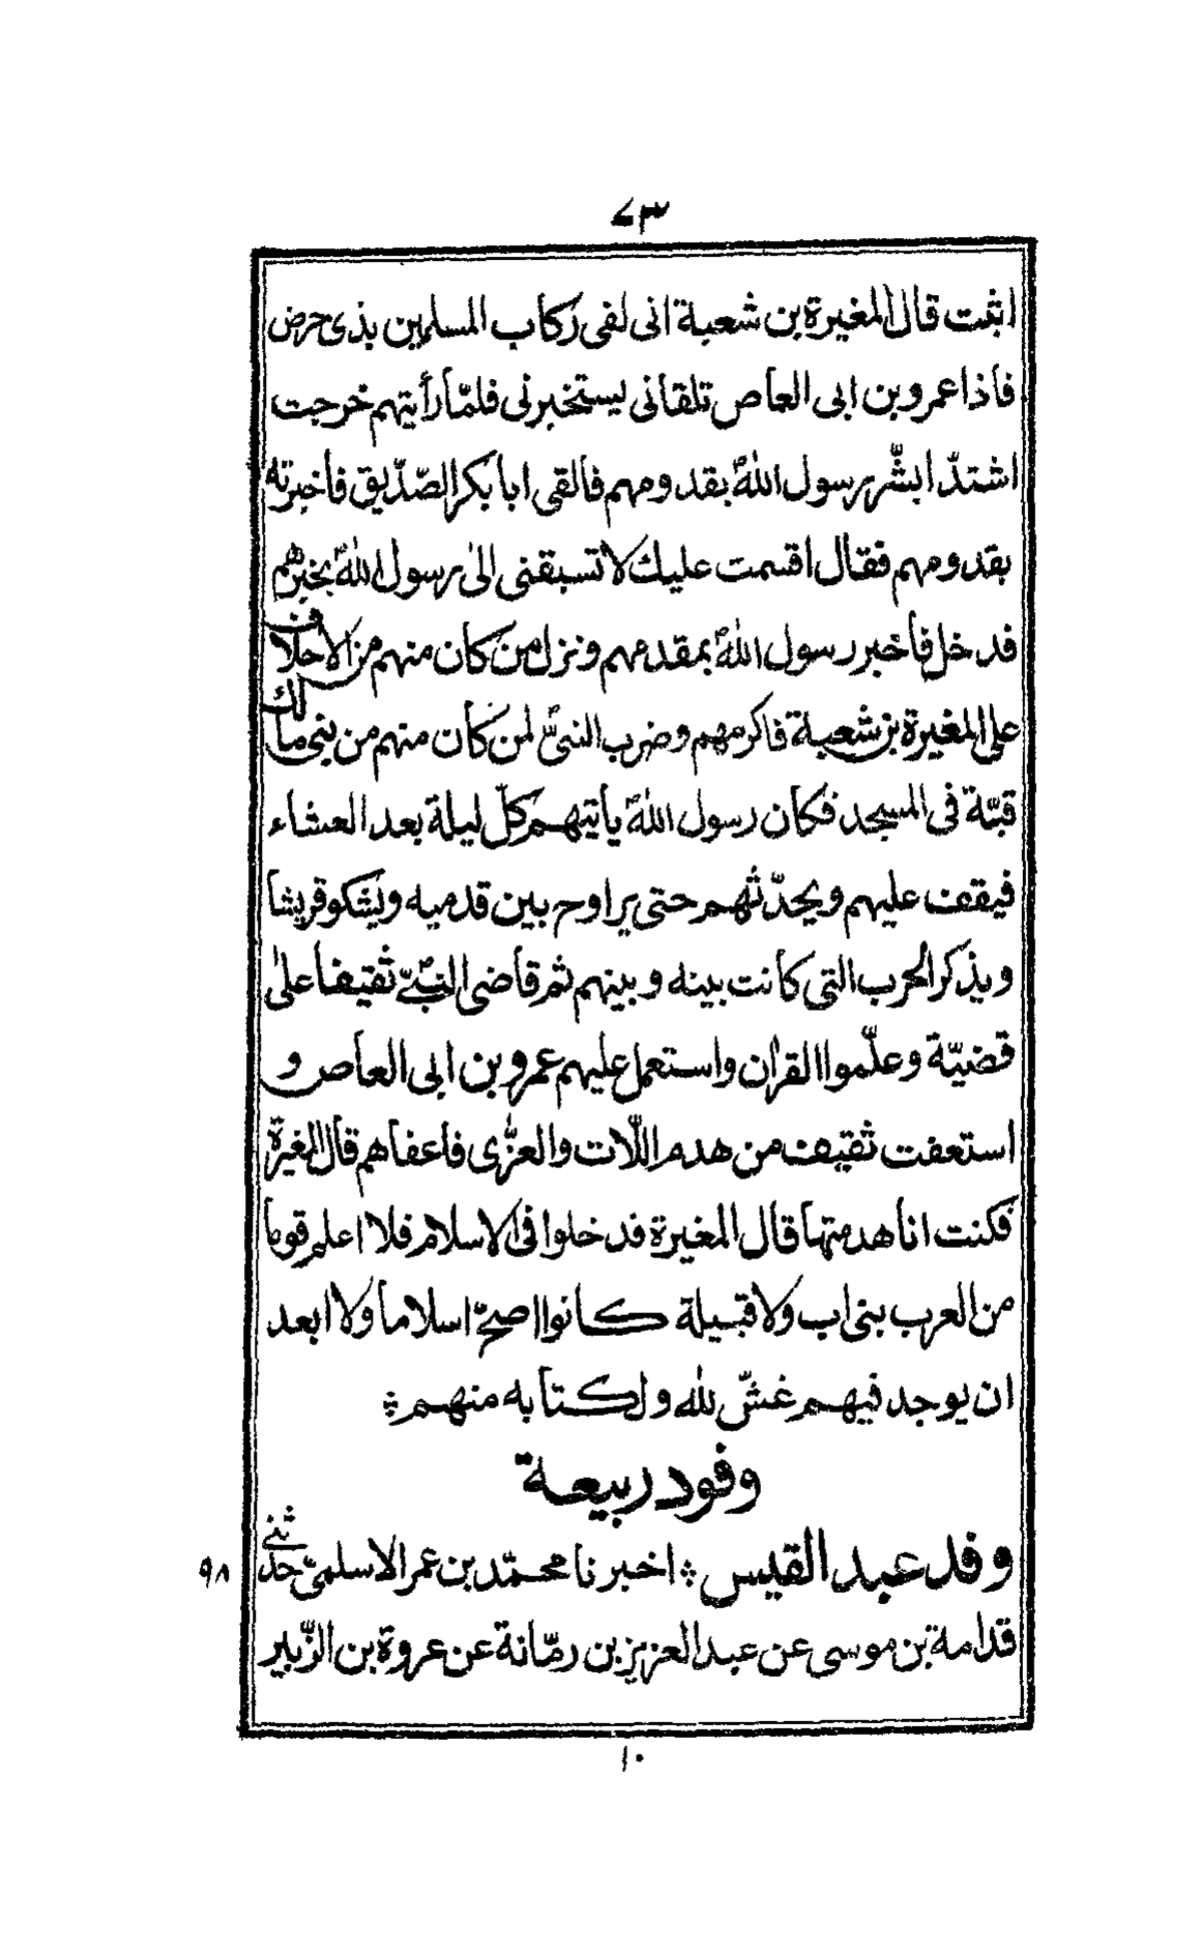 ٧٣
اثبت قال المغيرة بن شعبة انى لفى ركاب المسلمين بذى حرض
فاذا عمرو بن ابى العاص تلقانى ليستخبرنى فلمّا رأيتهم خرجت
اشتدّ ابشّر رسول اللهؐ بقدومهم فالقى ابا بكر الصّدّيق فأخبرته
بقدومهم فقال اقسمت عليك لا تسبقنى الى رسول اللهؐ بخبرهم
فدخل فأخبر رسول اللهؐ بمقدمهم ونزل من كان منهم من الاحلاف
على المغيرة بن شعبة فاكرمهم وضرب النبىؐ لمن كان منهم من بنى مالك
قبّة فى المسجد فكان رسول اللهؐ يأتيهم كلّ ليلة بعد العشاء
فيقف عليهم ويحدّثهم حتى يراوح بين قدميه ويشكو قريشا
ويذكر الحرب التى كانت بينه وبينهم ثم قاضى النبىّؐ ثقيفا على
قضيّة وعلّموا القرآن واستعمل عليهم عمرو بن ابى العاص و
استعفت ثقيف من هدم اللّات والعزّى فاعفاهم قال المغيرة
فكنت انا هدمتها قال المغيرة فدخلوا فى الاسلام فلا اعلم قوما
من العرب بنى اب ولا قبيلة كانوا اصحّ اسلاما ولا ابعد
ان يوجد فيهم غشّ لله ولكتابه منهم ؞
وفود ربيعة
وفد عبد القيس ؞ اخبرنا محمّد بن عمر الاسلمىّ حدّثنى
٩٨
قدامة بن موسى عن عبد العزيز بن رمّانة عن عروة بن الزّبير
١٠